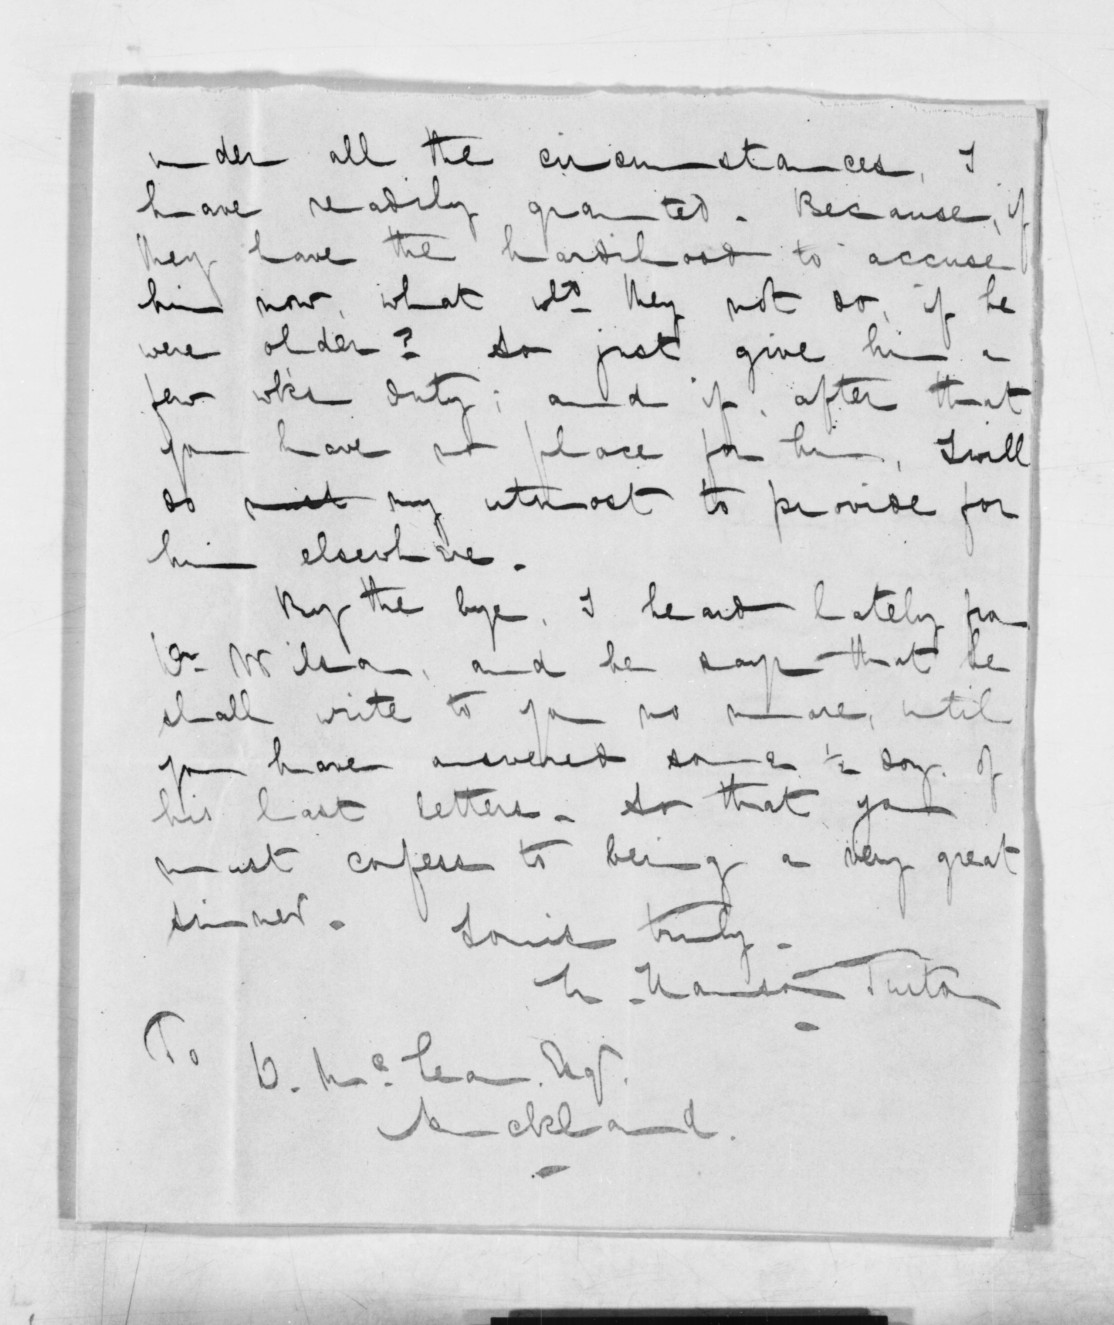 under all the circumstances, I
have readily granted. Because, if
they have the hardihood to accuse
him now, what wd. they not do, if he
were older? So just give him a
few wk's duty; and if, after that
you have no place for him, I will
do my utmost to provide for
him elsewhere.
By the bye, I heard lately from
Dr. Wilson, and he says that he
shall write to you no more, until
you have answered some ½ doz. of
his last letters. So that you
must confess to being a very great
sinner.
Yours truly.
H. Hanson Turton
To
D. McLean. Esqr.
Auckland.